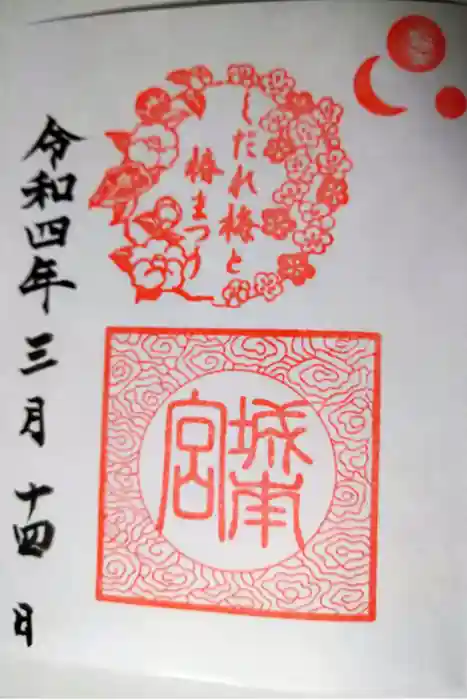 しだれ梅と
椿まつり
城南
宮
令和四年三月十四日